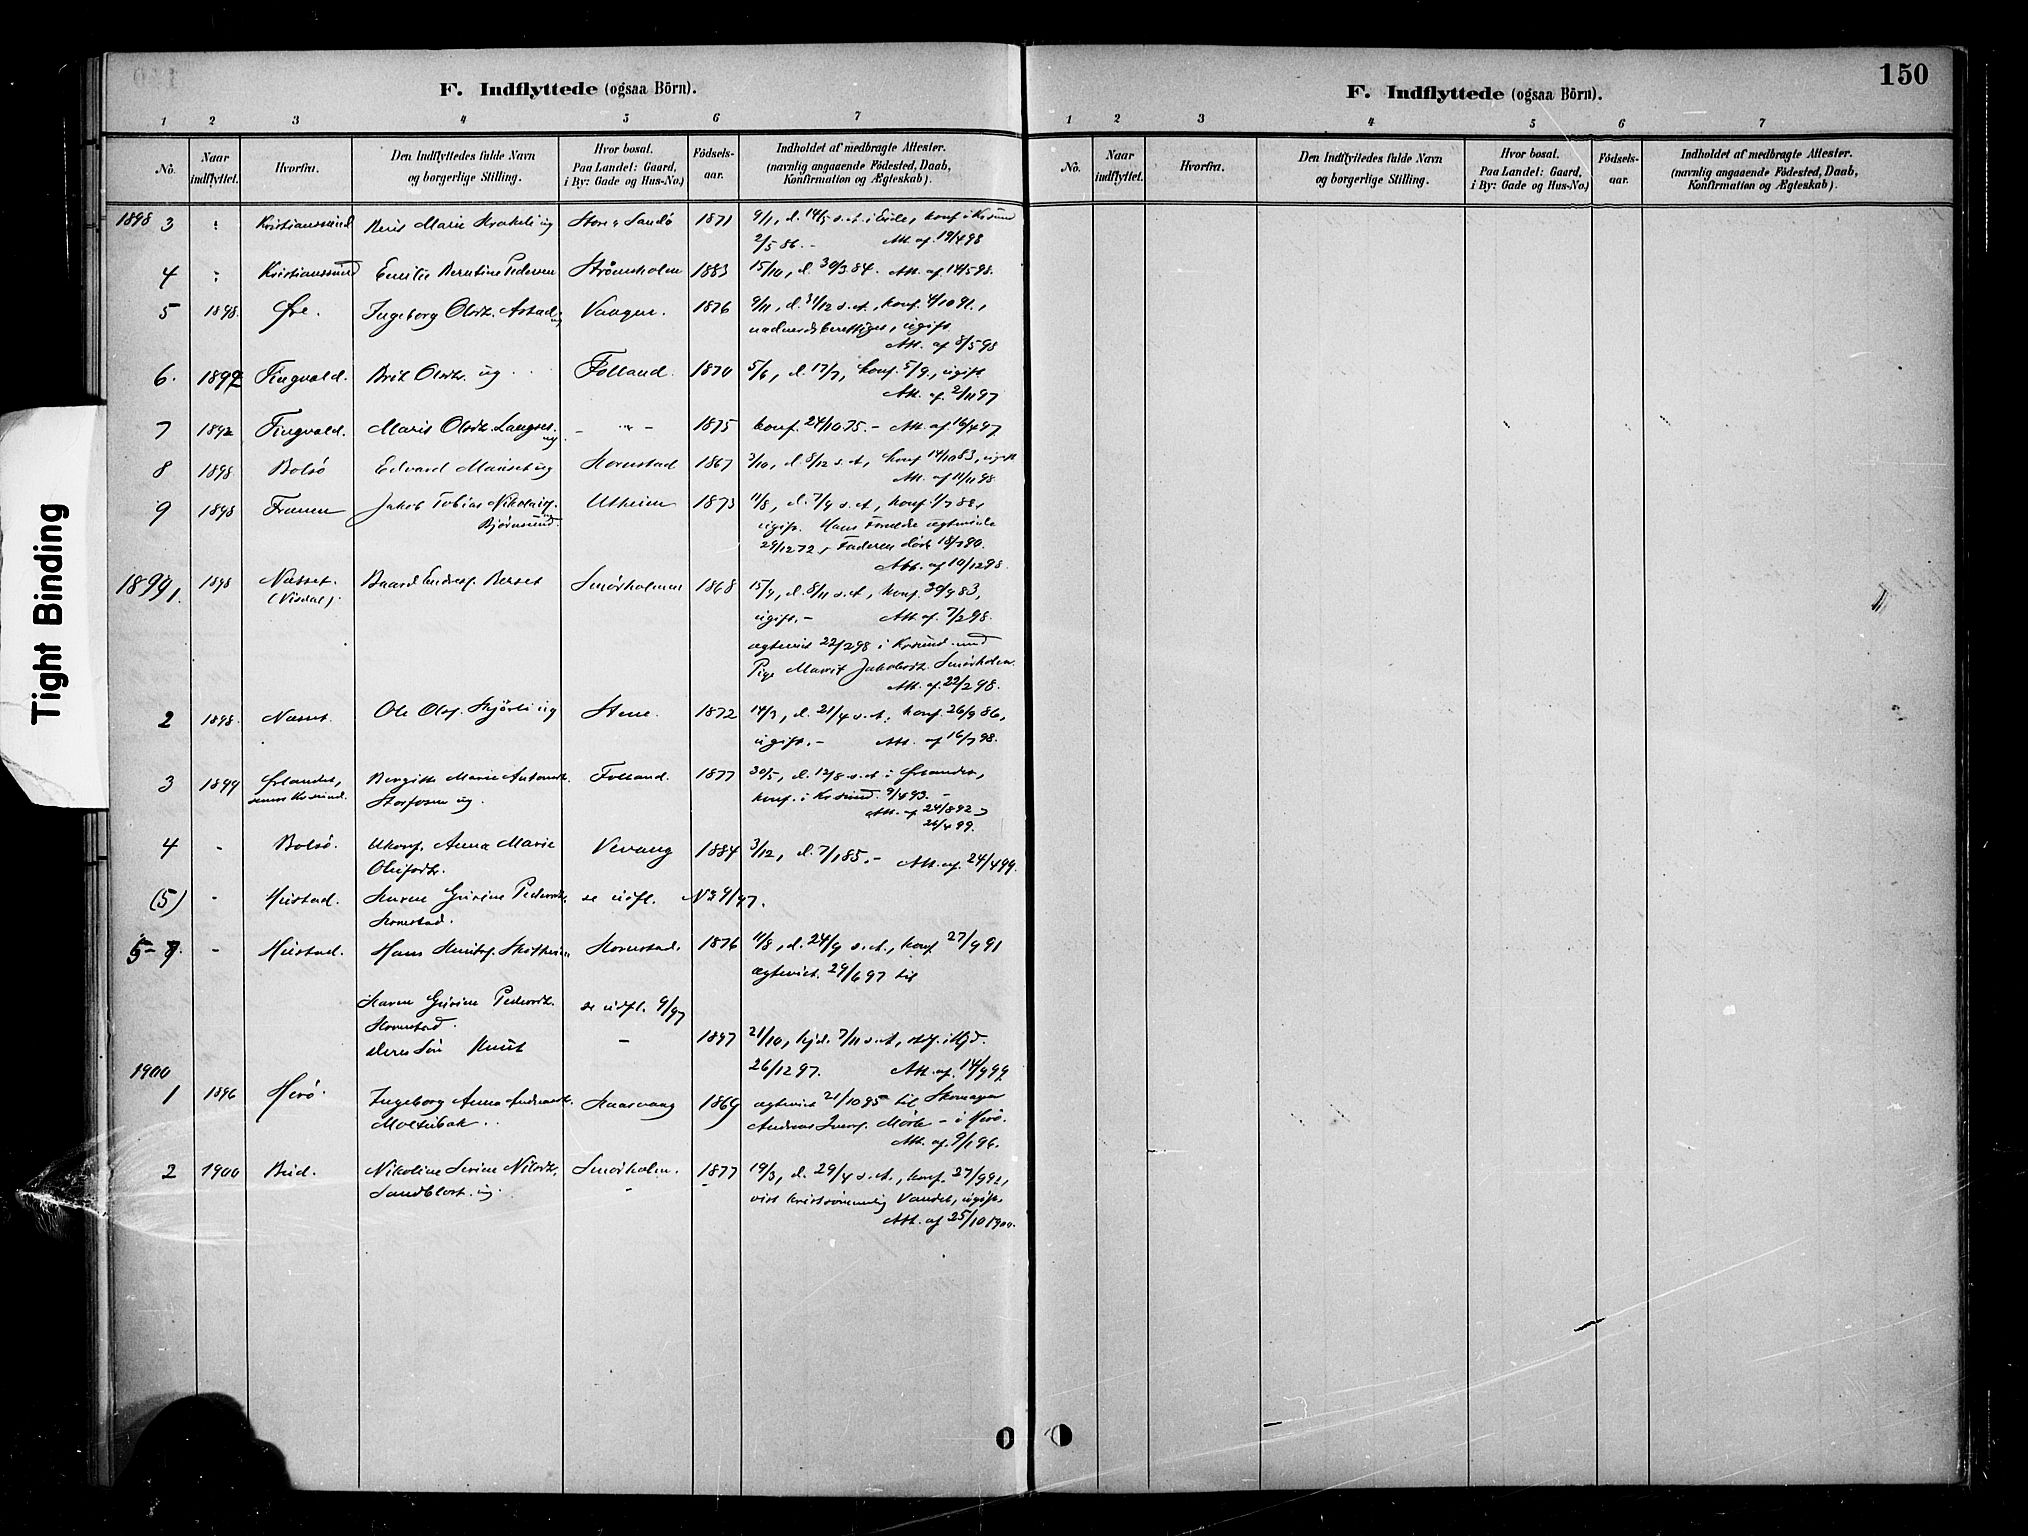 F. Indflyttede (ogsaa Börn).
1 2 3 4 5 6 7
No. Naar indflyttet. Hvorfra. Den Indflyttedes fulde Navn og borgerlige Stilling. Hvor bosat. Paa Landet: Gaard, i By: Gade og Hus-No.) Födsels-aar. Indholdet af medbragte Attester. (navnlig angaaende Födested, Daab, Konfirmation og Ægteskab).
1898 3 Kristianssund Marie ug Store Sandö 1871 9/1, d. 14/5 s.A. i Eide, konf. i Krsund
2/5 86. - Att. af 19/4 98
4 Kristianssund Emilie Berntine Pedersen Strömsholm 1883 15/10, d. 30/3 84. Att. af 14/5 98.
5 1898. Øre. Ingeborg Olsdt. Astad ug Vaagen. 1876 9/11, d. 31/12 s.A., konf. 4/10 91,
nadverdsberettiget, ugift.
Att. af 8/5 98
6. 1897 Tingvold. Brit Olsdt. ug Folland. 1870 5/6, d. 17/7, konf. 5/9, ugift
Att. af 2/11 97
7 1892 Tingvold. Marit Olsdt. Langset ug. - " - 1875 konf. 24/10 75. - Att. af 16/4 97
8 1898 Bolsö Edvard ug Kornstad 1867 3/10, d. 8/12 s.A., konf 14/10 83, ugift
Att. af 11/11 98
9 1898 Frænen Jakob Tobias Nikolaisen Utheim 1873 11/8, d. 7/9 s.A., konf. 1/7 88,
Björnsund. ugift. Hans Forældre ægteviede
29/12 72, Faderen död 18/7 90.
Att. af 10/12 98.
1899 1. 1898 Næsset. Baard Endresen Berset Smörholmen 1868 15/9, d. 8/11 s.A., konf. 30/9 83,
(Visdal). ugift. - Att. af 7/2 98.
ægteviet 22/2 98 i Krsund med
Pige Marit Jakobsdt. Smörholm
Att. af 22/2 98.
2 1898. Næsset. Ole Olsen ug Stene. 1872 14/3, d. 21/4 s.A., konf. 26/9 86,
ugift. - Att. af 16/7 98.
3 1899 Ørlandet, Bergitte Marie Antonsdt. Folland. 1877 30/5, d. 12/8 s.A. i Ørlandet,
Storfosen ug. konf. i Krsund. 9/4 93. -
Att. af 24/8 92 &
26/4 99.
4 - Bolsö. Ukonf. Anna Marie Vevang 1884 3/12, d. 7/1 85. - Att. af 24/4 99.
(5) - Hustad. Karen Gurine Pedersdt. se udfl. No 9/97.
Kornstad.
5-7. - Hustad. Hans Knutsen Kornstad. 1876 11/8, d. 24/9 s.A., konf. 27/9 91
ægteviet. 29/6 97 til
Karen Gurine Pedersdt. se udfl. 9/97
Kornstad.
deres Sön Knut - 1897 21/10, hjd. 7/11 s.A., i Hjd.
26/12 97. Att. af 14/9 99.
1900
1 1896 Herö. Ingeborg Anna 1869 ægteviet 21/10 95 til Skomager
Andreas Iversen Mörk - i Herö.
Att. af 9/1 96.
2 1900 Bud. Nikoline Serine Nilsdt. Smörholm. 1877 19/3, d. 29/4 s.A., konf. 27/9 92,
Sandblost. ug. - vist kristsömmelig Vandel, ugift.
Att. af 25/10 1900.
150
F. Indflyttede (ogsaa Börn).
1 2 3 4 5 6 7
No. Naar indflyttet. Hvorfra. Den Indflyttedes fulde Navn og borgerlige Stilling. Hvor bosat. Paa Landet: Gaard, i By: Gade og Hus-No.) Födsels-aar. Indholdet af medbragte Attester. (navnlig angaaende Födested, Daab, Konfirmation og Ægteskab).
Tight Binding